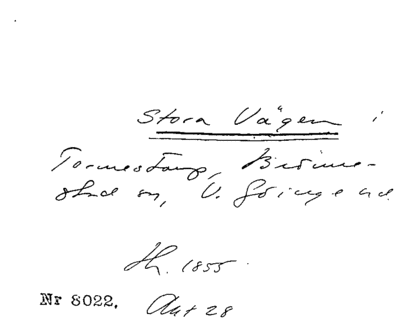 Stora Vägen i
Tormestorp, Brönne-
stad sn, V. Göinge hd.
Th. 1855.
Nr 8022. Akt 28